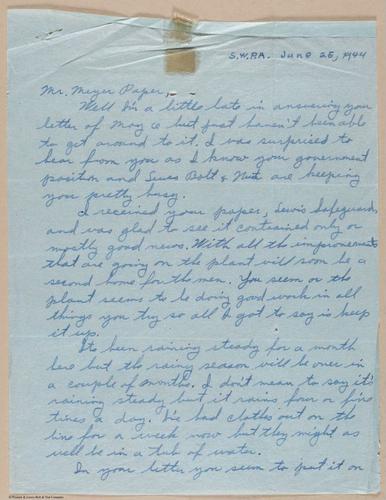 S.W.P.A. June 25, 1944
Mr. Meyer Paper,
Well I'm a little late in answering your
letter of May 6 but just haven't been able
to get around to it. I was surprised to
hear from you as I know your government
position and Lewis Bolt & Nut are keeping
you pretty busy.
I received your paper, Lewis Safeguards,
and was glad to see it contained only or
mostly good news. With all the improvements
that are going on the plant will soon be a
second home for the men. You seem or the
plant seems to be doing good work in all
things you try so all I got to say is keep
it up.
Its been raining steady for a month
here but the rainy season will be over in
a couple of months. I don't mean to say it's
raining steady but it rains four or five
times a day. I've had clothes out on the
line for a week now but they might as
well be in a tub of water.
In your letter you seem to put it on